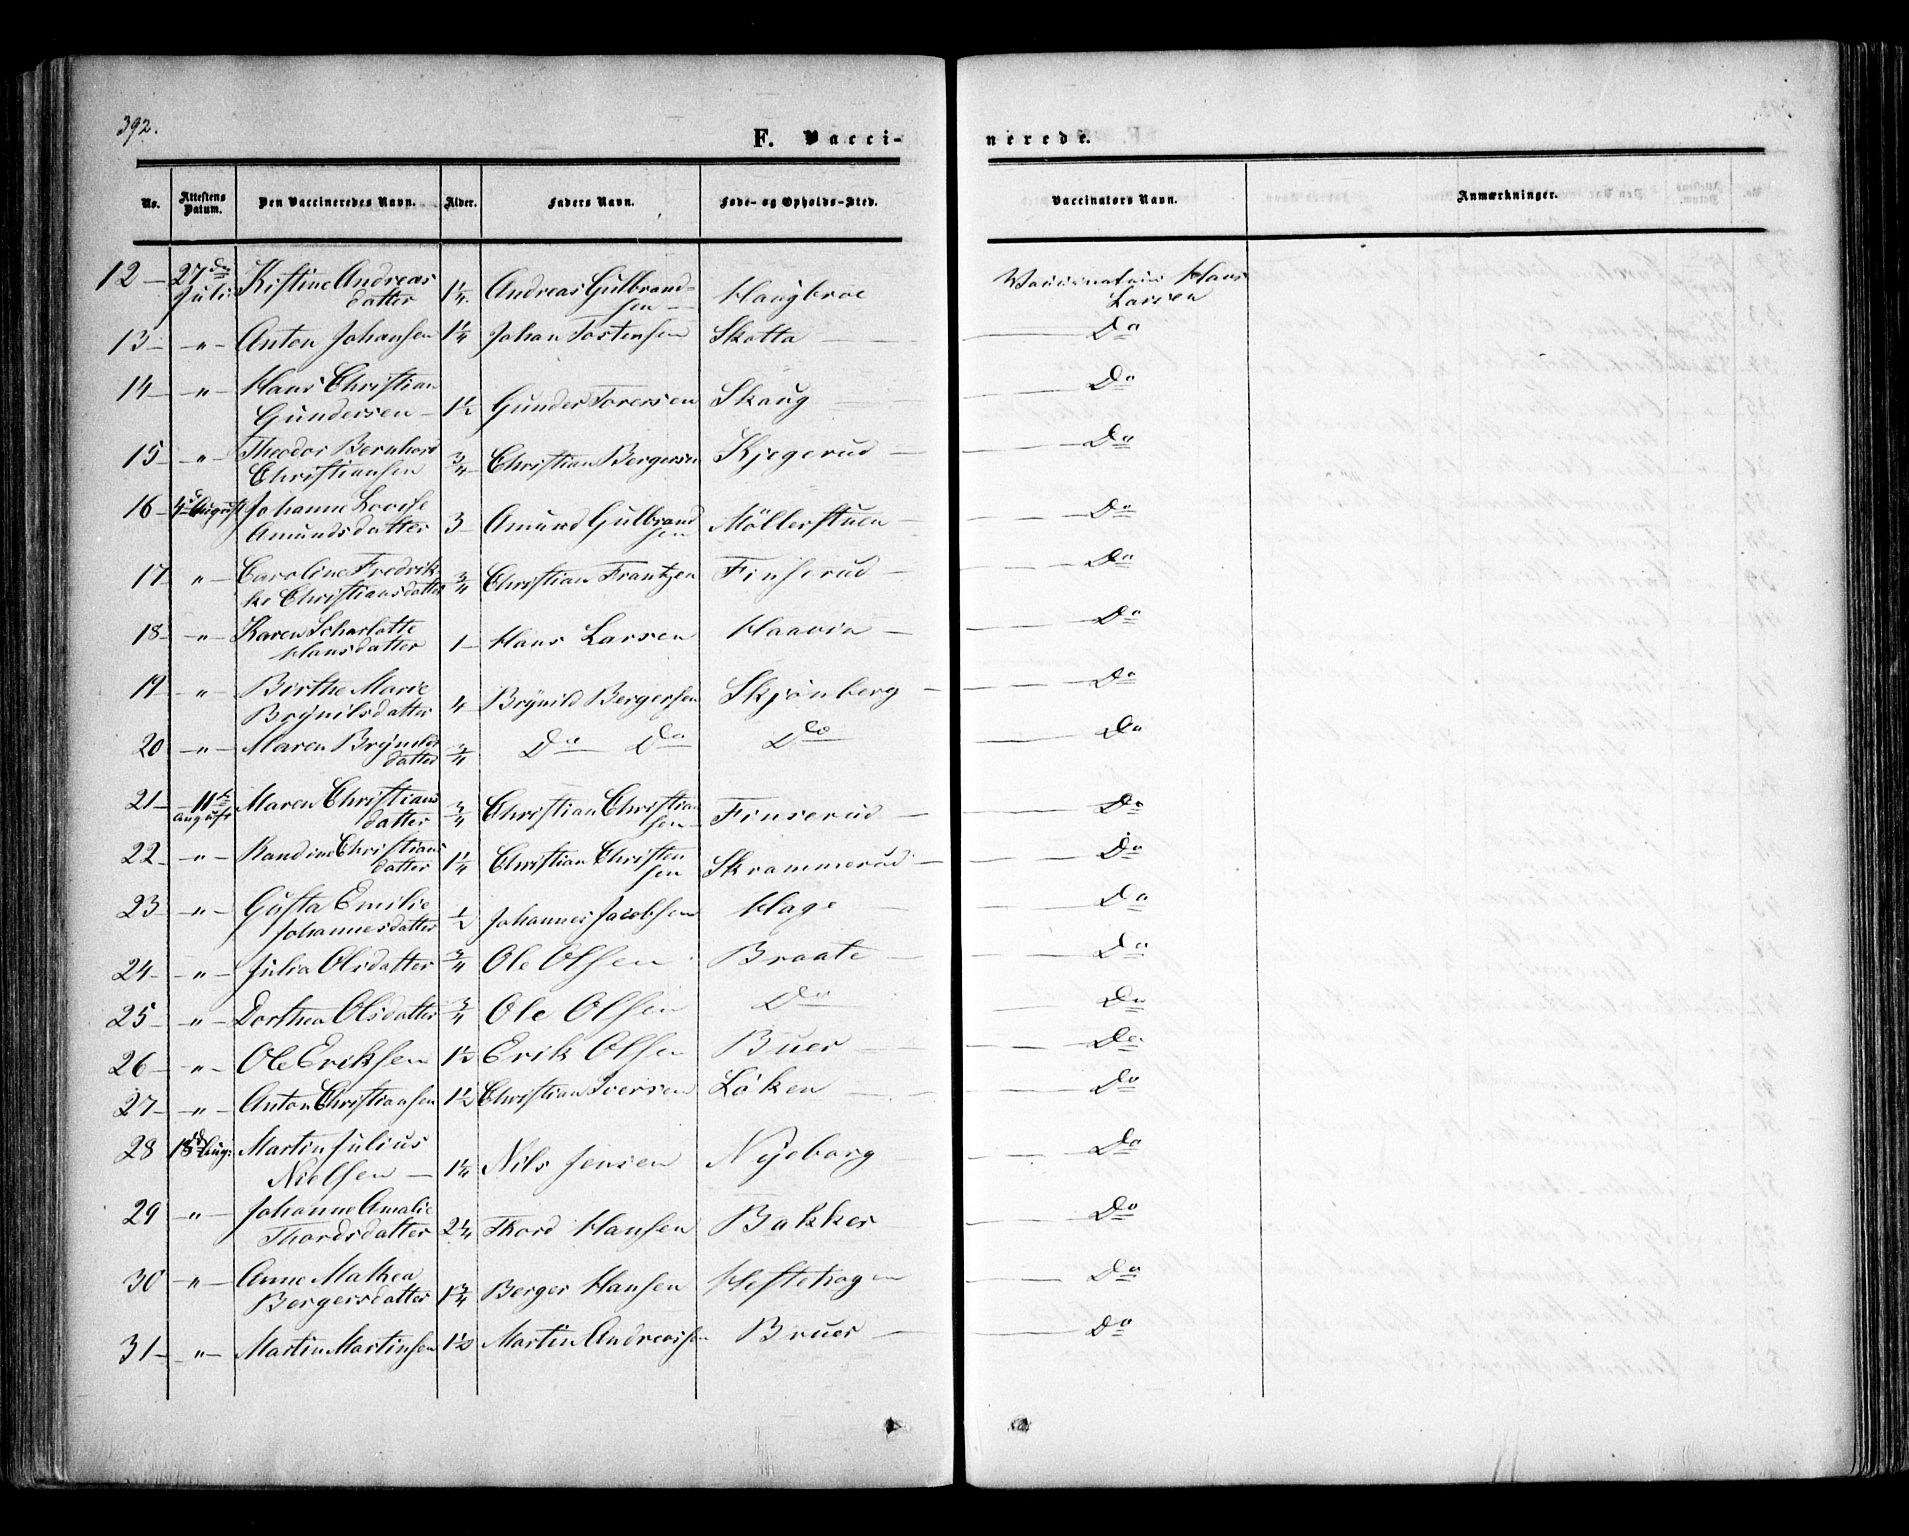 392.
F. Vacci-
nerede.
No. Attestens Datum. Den Vaccineredes Navn. Alder. Faders Navn. Føde- og Opholds-Sted. Vaccinators Navn. Anmærkninger.
12 — 27de Juli Kistine Andreas datter 1 1/4 Andreas Gulbrand- sen — Haugbroe Vaccinateur Hans Larsen
13 — „ — Anton Johansen 1 1/4 Johan Tostensen Skotta — Do
14 — „ — Hans Christian Gundersen — 1 1/2 Gunder Torersen Skaug — Do
15 — „ — Theodor Bernhard Christiansen 3/4 Christian Bergersen Kjegerud — Do
16 4de August Johanne Lovise Amundsdatter 3 — Amund Gulbrand sen Möllerstuen — Do
17 — „ — Caroline Fredrik- ke Christiansdatter 3/4 Christian Frantzen Finserud — Do
18 — „ — Karen Scharlotte Hansdatter 1 — Hans Larsen Haavin — Do
19 — „ — Birthe Marie Brynilsdatter 4 Brynild Bergersen Skjönberg — Do
20 — „ — Maren Brynilds datter 3/4 Do Do Do Do
21 — 11te August Maren Christians datter 3/4 Christian Christian sen — Finserud — Do
22 — „ — Randine Christians datter 1 1/4 Christian Christen sen Skrammerud — Do
23 — „ — Gusta Emilie Johannesdatter 1/2 Johannes Jacobsen Hage — Do
24 — „ — Julia Olsdatter 3/4 Ole Olsen Braate — Do
25 — „ — Dorthea Olsdatter 3/4 Ole Olsen Do Do
26 — „ — Ole Eriksen 1 1/2 Erik Olsen Buer — Do
27 — „ — Anton Christiansen 1 1/2 Christian Iversen Löken — Do
28 18de Aug: Martin Julius Nielsen — 1 1/4 Nils Jensen Nyeborg Do
29 — „ — Johanne Amalie Thordsdatter 2 1/4 Thord Hansen Bakker Do
30 — „ — Anne Mathea Bergersdatter 1 3/4 Berger Hansen Hestehagen Do
31 — „ — Martin Martinsen 1 1/2 Martin Andreassen Bruer — Do